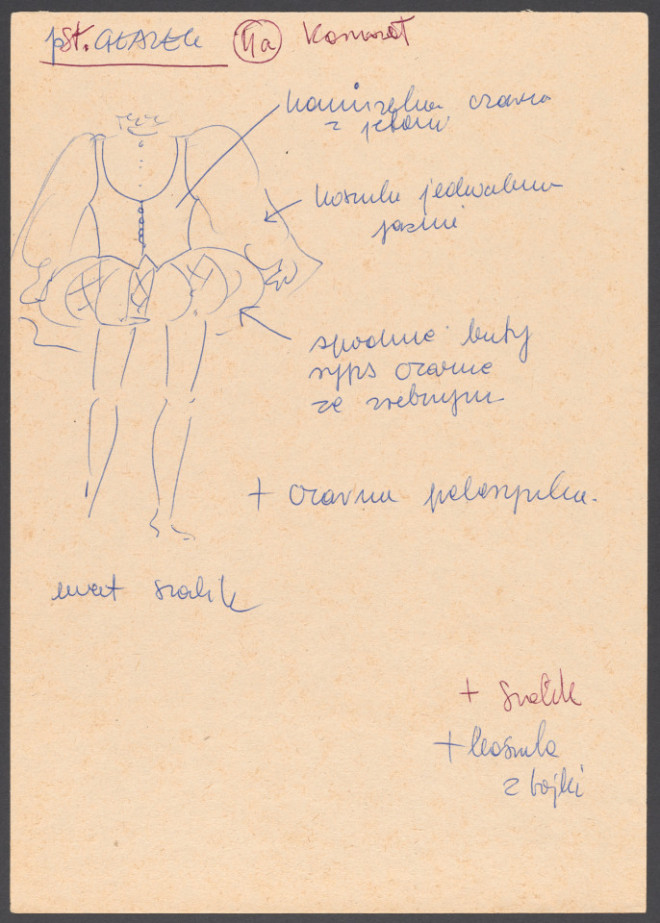 p St. GŁAZEK 11a Konrad
kamizelka czarna
z
koszula jedwabna
jasna
spodnie bufy
ryps czarne
ze srebrnym
+ czarna peleryna
szalik
+ szalik
+ koszula
z bajki